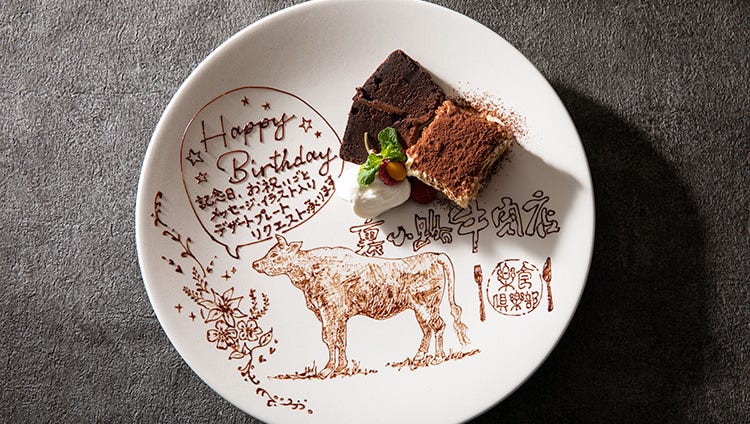 Happy
Birthday
記念日、お祝いごと
メッセージ、イラスト入り
デザートプレート
リクエスト承ります
裏小路牛肉店
楽食
倶楽部